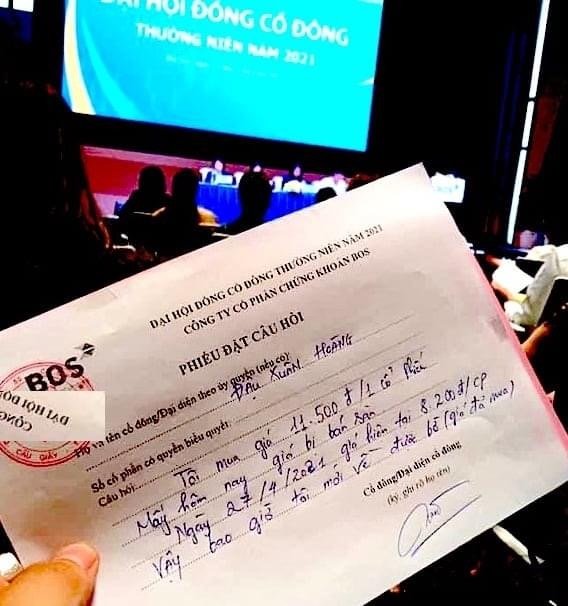 ĐẠI HỘI ĐỒNG CỔ ĐÔNG
THƯỜNG NIÊN NĂM 2021
ĐẠI HỘI ĐỒNG CỔ ĐÔNG THƯỜNG NIÊN NĂM 2021
CÔNG TY CỔ PHẦN CHỨNG KHOÁN BOS
BOS
PHIẾU ĐẶT CÂU HỎI
Họ và tên cổ đông/Đại diện theo ủy quyền (nếu có): ĐẬU XUÂN HOÀNG
Số cổ phần có quyền biểu quyết:
Câu hỏi: Tôi mua giá 11.500 đ/1 cổ phiếu
Mấy hôm nay giá bị bán sàn
Ngày 27/4/2021 giá hiện tại 8.200đ/CP
Vậy bao giờ tôi mới về được bờ (giá đã mua)
Cổ đông/Đại diện cổ đông
(ký, ghi rõ họ tên)
ĐẠI HỘI ĐỒ
CÔNG
CẦU GIẤY